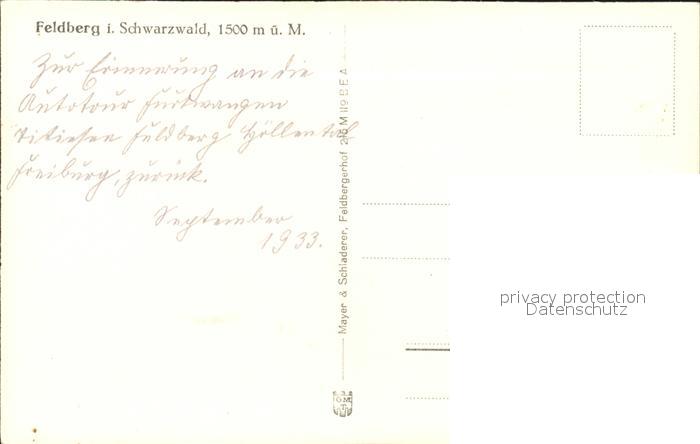 Feldberg i. Schwarzwald, 1500 m ü. M.
Zur Erinnerung an die
Autotour Furtwangen
Titiesen Feldberg Höllental
Freiburg, zurück.
September
1933.
Mayer & Schladerer, Feldbergerhof
privacy protection
Datenschutz